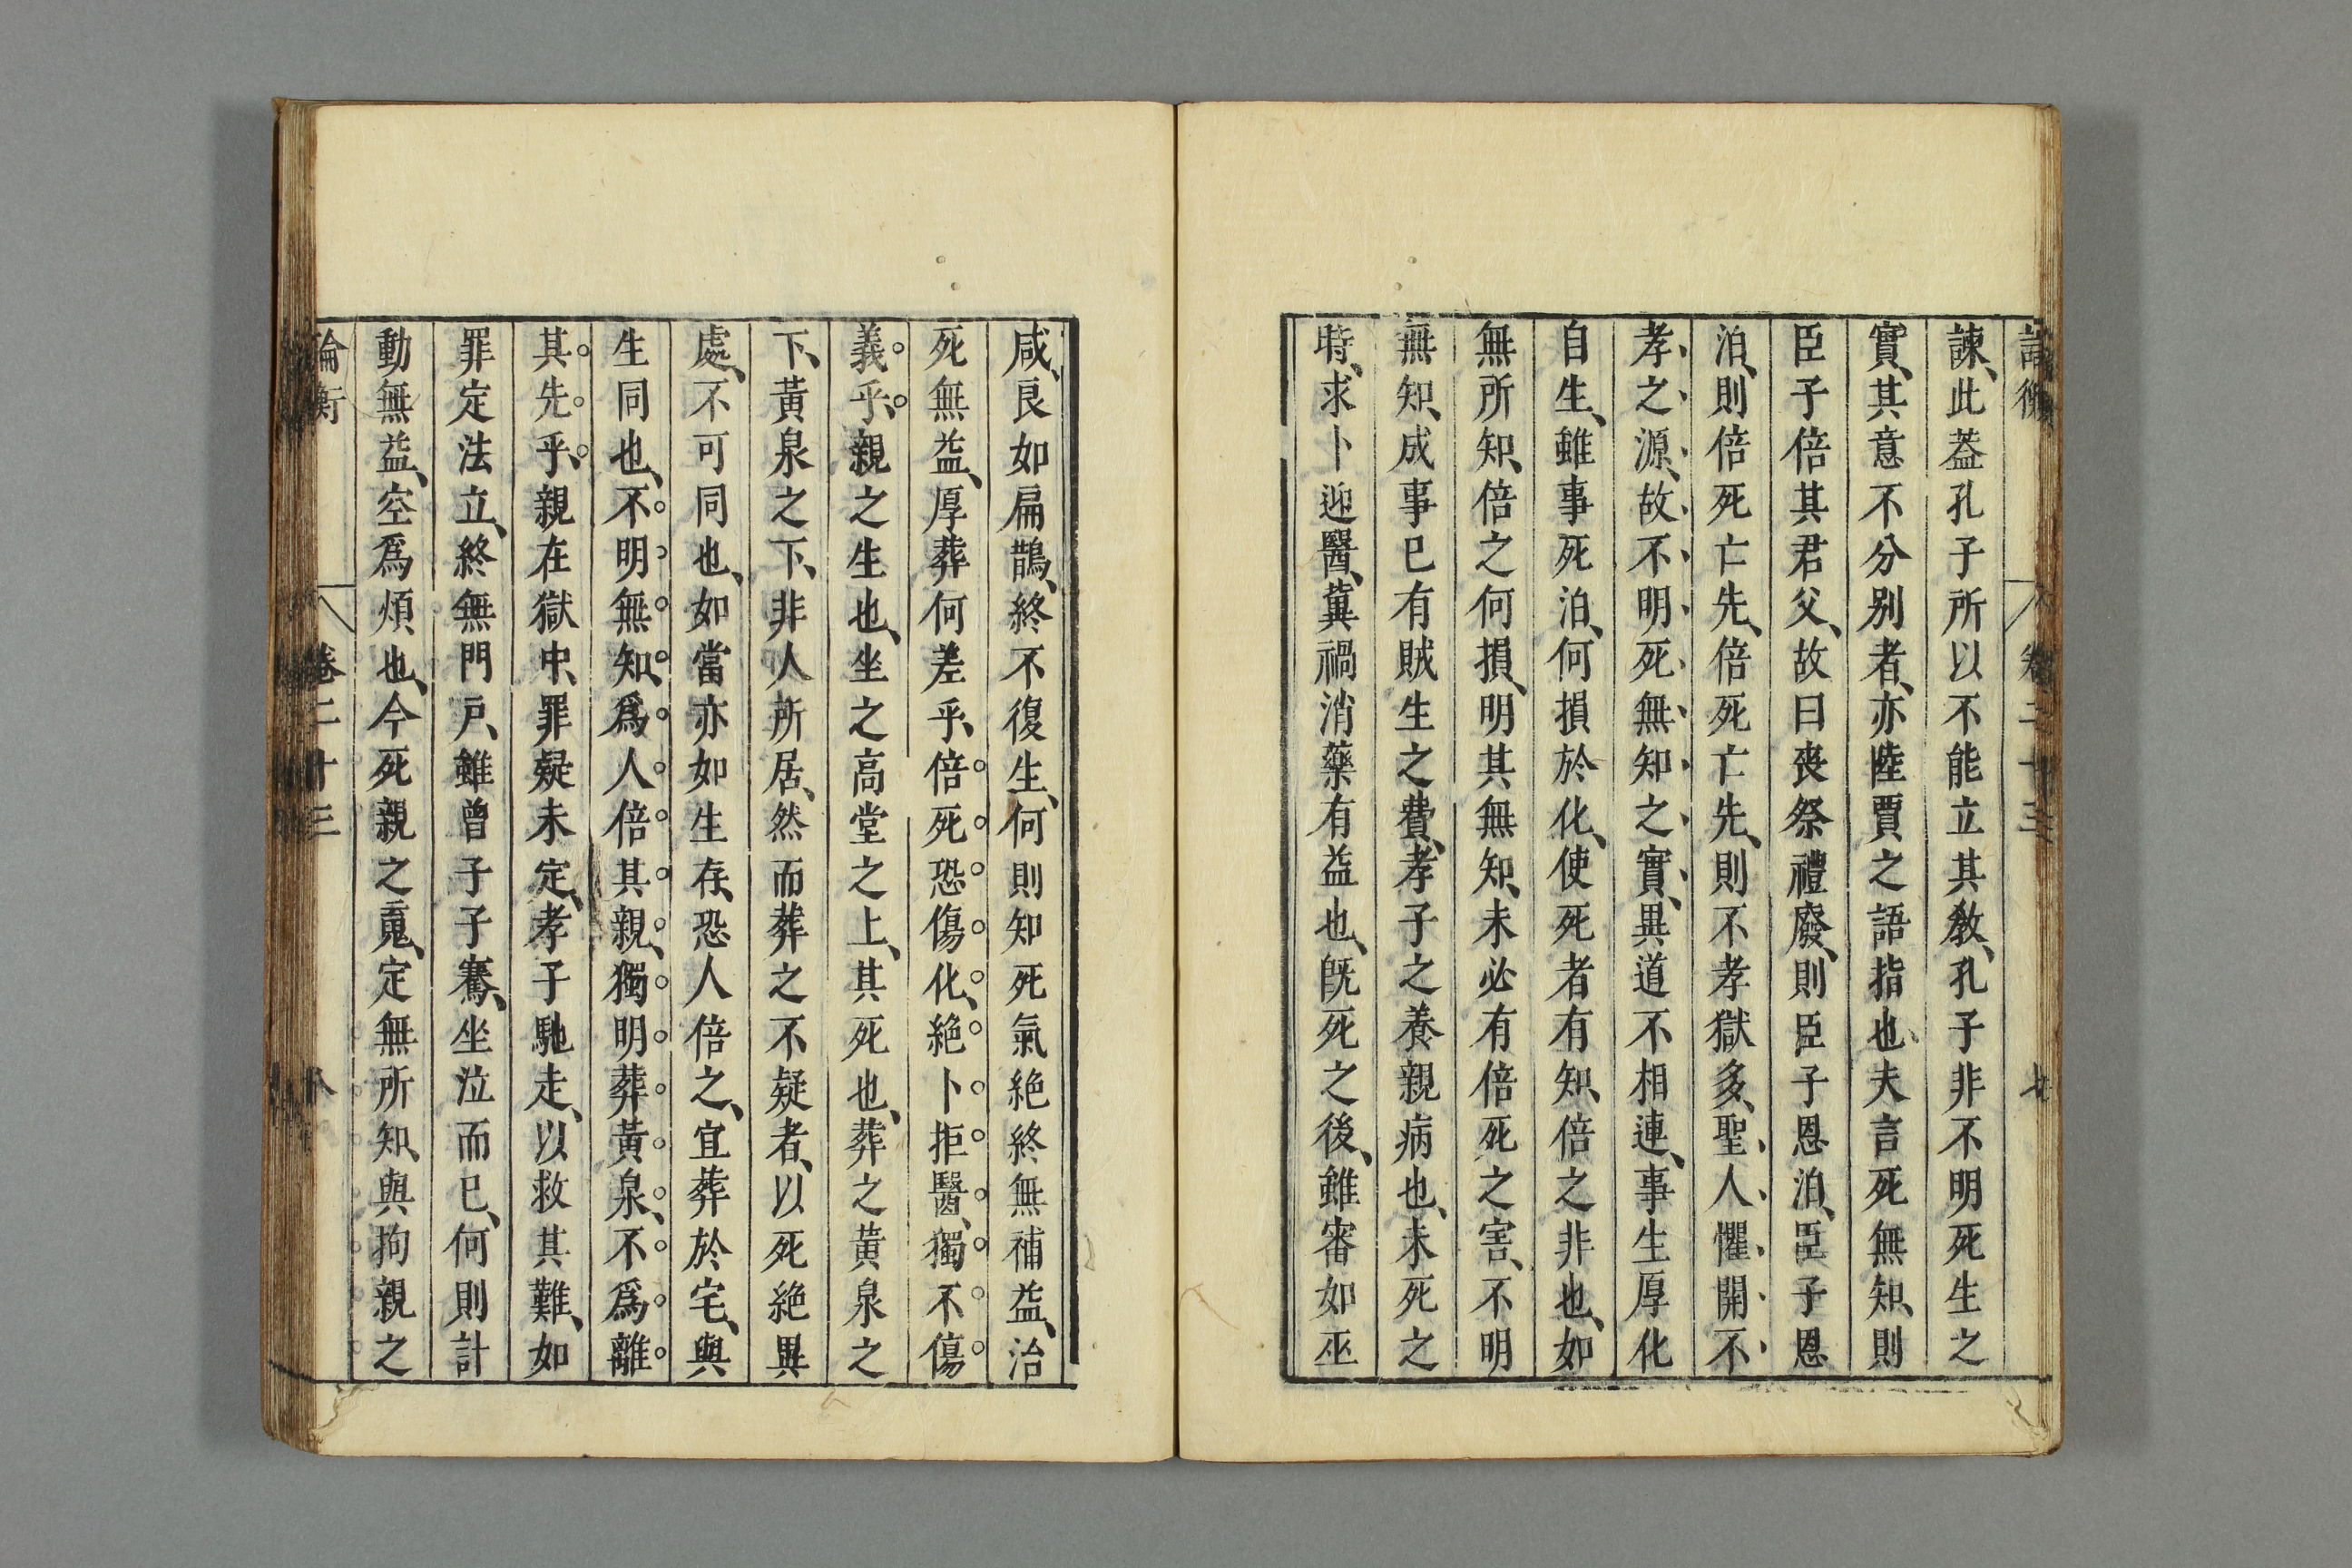 論衡 卷二十三 七
諫、此葢孔子所以不能立其敎、孔子非不明死生之
實、其意不分别者、亦陸賈之語指也、夫言死無知、則
臣子倍其君父、故曰喪祭禮廢、則臣子恩泊、臣子恩
泊、則倍死亡先、倍死亡先、則不孝獄多、聖人懼開不
孝之源、故不明死無知之實、異道不相連、事生厚化
自生、雖事死泊、何損於化、使死者有知、倍之非也、如
無所知、倍之何損、明其無知、未必有倍死之害、不明
無知、成事已有賊生之費、孝子之養親病也、未死之
時、求卜迎醫、冀禍消藥有益也、既死之後、雖審如巫
咸、良如扁鵲、終不復生、何則知死氣絶終無補益、治
死無益、厚葬何差乎、倍死恐傷化、絶卜拒醫、獨不傷
義乎、親之生也、坐之高堂之上、其死也、葬之黄泉之
下、黄泉之下、非人所居、然而葬之不疑者、以死絶異
處、不可同也、如當亦如生存、恐人倍之、宜葬於宅、與
生同也、不明無知、爲人倍其親、獨明葬黄泉、不爲離
其先乎、親在獄中、罪疑未定、孝子馳走、以救其難、如
罪定法立、終無門戸、雖曾子子騫、坐泣而已、何則計
動無益、空爲煩也、今死親之䰟、定無所知、與拘親之
論衡 卷二十三 八